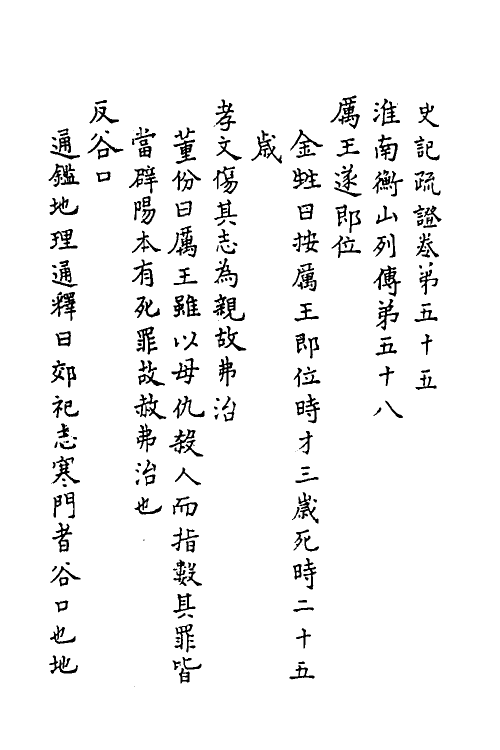 史記疏證卷弟五十五
淮南衡山列傳弟五十八
厲王遂即位
金甡曰按厲王即位時才三歲死時二十五
歲
孝文傷其志為親故弗治
董份曰厲王雖以母仇殺人而指數其罪皆
當辟陽本有死罪故赦弗治也
反谷口
通鑑地理通釋曰郊祀志寒門者谷口也地